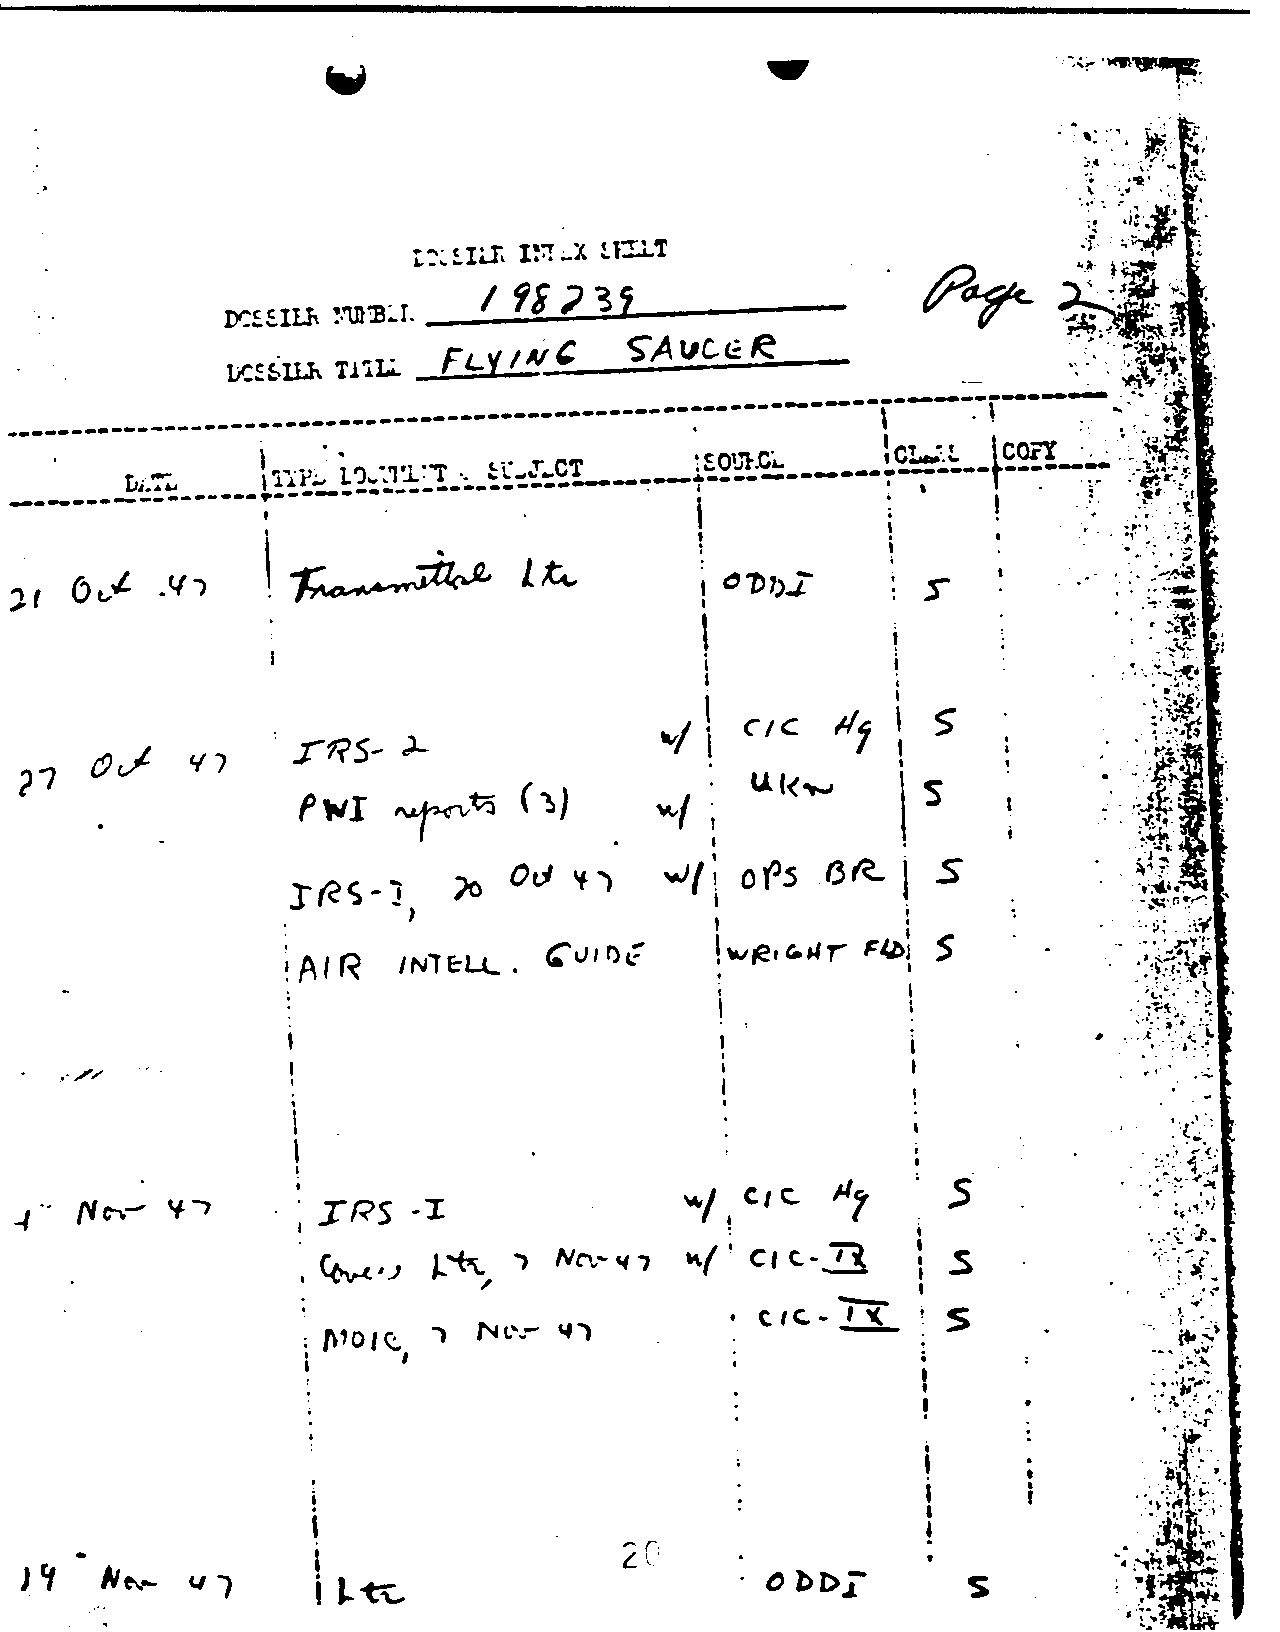 DOSSIER INDEX SHEET
Page 2
DOSSIER NUMBER 198239
DOSSIER TITLE FLYING SAUCER
DATE TYPE DOCUMENT & SUBJECT SOURCE CLASS COPY
21 Oct 47 Transmittal Ltr ODDI S
27 Oct 47 IRS-2 w/ CIC Hq S
PWI reports (3) w/ UKn S
IRS-I, 20 Oct 47 w/ OPS BR S
AIR INTELL. GUIDE WRIGHT FLD S
Nov 47 IRS-I w/ CIC Hq S
Ltr, 7 Nov 47 w/ CIC-IX S
MOIC, 7 Nov 47 CIC-IX S
20
19 Nov 47 Ltr ODDI S